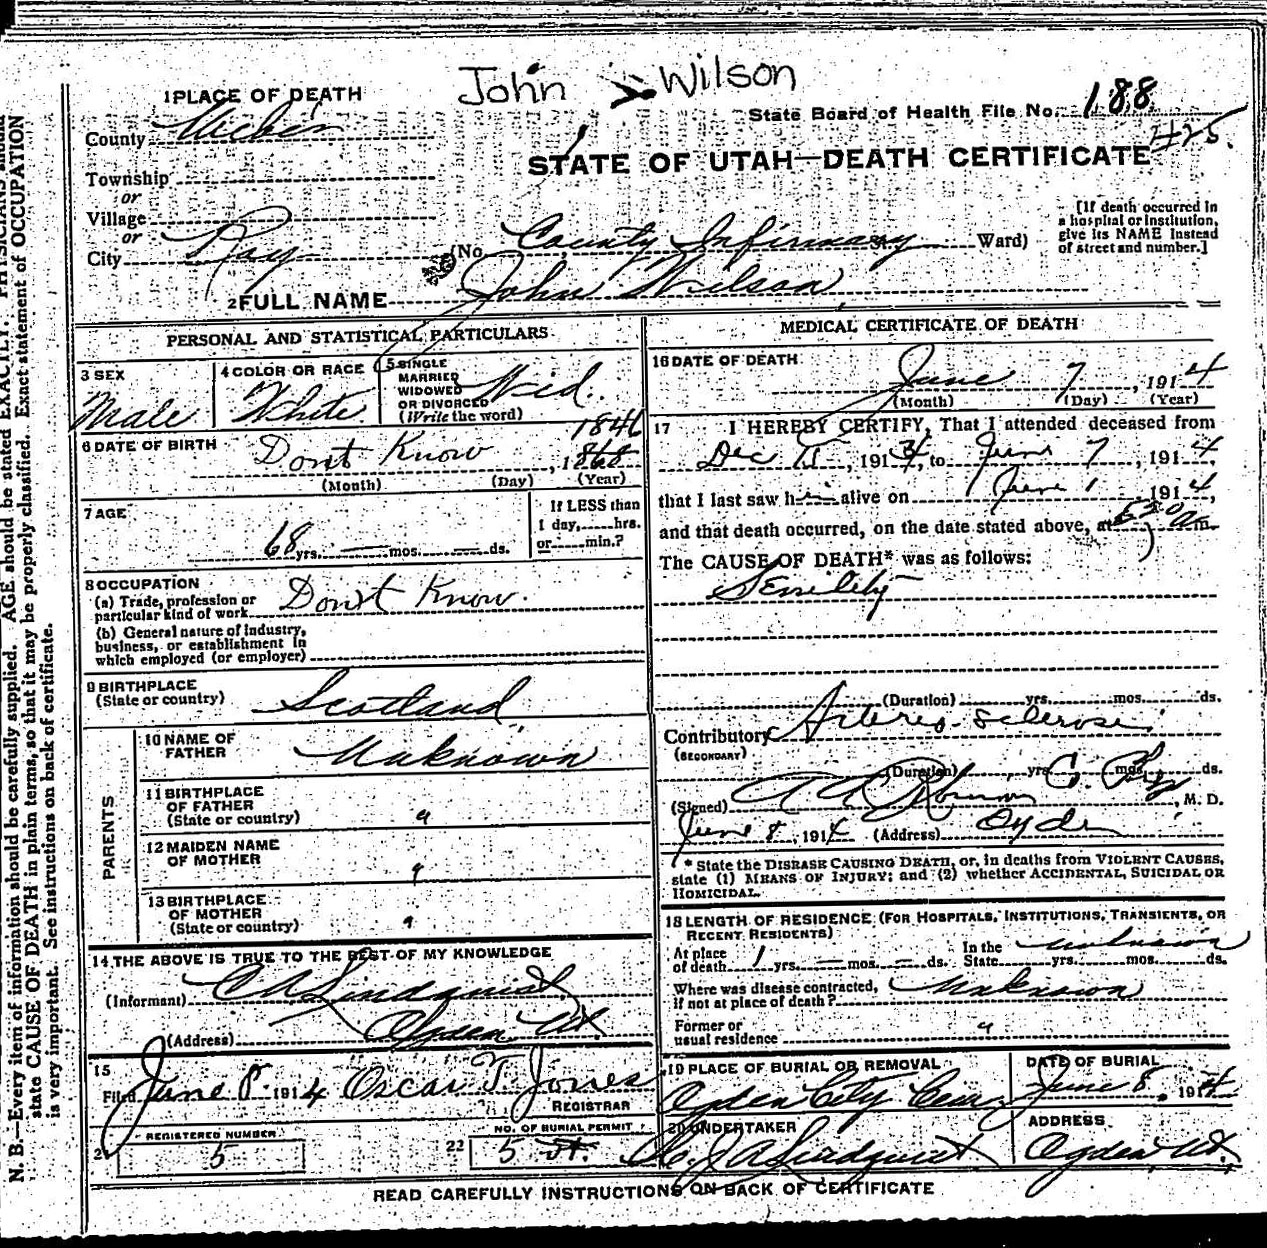 John Wilson
1 PLACE OF DEATH
State Board of Health File No. 188
425.
County Weber
STATE OF UTAH—DEATH CERTIFICATE
Township
or
Village
or
City Roy
(No. County Infirmary Ward)
[If death occurred in
a hospital or institution,
give its NAME instead
of street and number.]
2 FULL NAME John Wilson
PERSONAL AND STATISTICAL PARTICULARS
3 SEX
Male
4 COLOR OR RACE
White
5 SINGLE
MARRIED
WIDOWED
OR DIVORCED
(Write the word)
Wid.
6 DATE OF BIRTH
1846
Dont Know , 1868
(Month) (Day) (Year)
7 AGE
68 yrs. — mos. — ds.
If LESS than
1 day, hrs.
or min.?
8 OCCUPATION
(a) Trade, profession or
particular kind of work Don't Know.
(b) General nature of industry,
business, or establishment in
which employed (or employer)
9 BIRTHPLACE
(State or country) Scotland
PARENTS
10 NAME OF
FATHER Unknown
11 BIRTHPLACE
OF FATHER
(State or country) "
12 MAIDEN NAME
OF MOTHER "
13 BIRTHPLACE
OF MOTHER
(State or country) "
14 THE ABOVE IS TRUE TO THE BEST OF MY KNOWLEDGE
(Informant) C A Lindquist
(Address) Ogden Ut
15
Filed June 8 1914 Oscar T. Jones
REGISTRAR
REGISTERED NUMBER
5
22
NO. OF BURIAL PERMIT
5
MEDICAL CERTIFICATE OF DEATH
16 DATE OF DEATH
June 7, 1914
(Month) (Day) (Year)
17 I HEREBY CERTIFY, That I attended deceased from
Dec 15, 1913, to June 7, 1914,
that I last saw him alive on June 1 1914,
and that death occurred, on the date stated above, at 530 a m.
The CAUSE OF DEATH* was as follows:
Senility
(Duration) yrs. mos. ds.
Contributory Arterio-sclerosis
(SECONDARY)
(Duration) yrs. mos. ds.
(Signed) , M. D.
June 8, 1914 (Address) Ogden
* State the DISEASE CAUSING DEATH, or, in deaths from VIOLENT CAUSES,
state (1) MEANS OF INJURY; and (2) whether ACCIDENTAL, SUICIDAL OR
HOMICIDAL.
18 LENGTH OF RESIDENCE (FOR HOSPITALS, INSTITUTIONS, TRANSIENTS, OR
RECENT RESIDENTS)
At place
of death 1 yrs. — mos. — ds.
In the
State unknown yrs. mos. ds.
Where was disease contracted,
if not at place of death? Unknown
Former or
usual residence "
19 PLACE OF BURIAL OR REMOVAL
Ogden City Cem
DATE OF BURIAL
June 8, 1914
20 UNDERTAKER
C. J. A Lindquist
ADDRESS
Ogden, Ut.
READ CAREFULLY INSTRUCTIONS ON BACK OF CERTIFICATE
N. B.—Every item of information should be carefully supplied. AGE should be stated EXACTLY. PHYSICIANS should
state CAUSE OF DEATH in plain terms, so that it may be properly classified. Exact statement of OCCUPATION
is very important. See instructions on back of certificate.